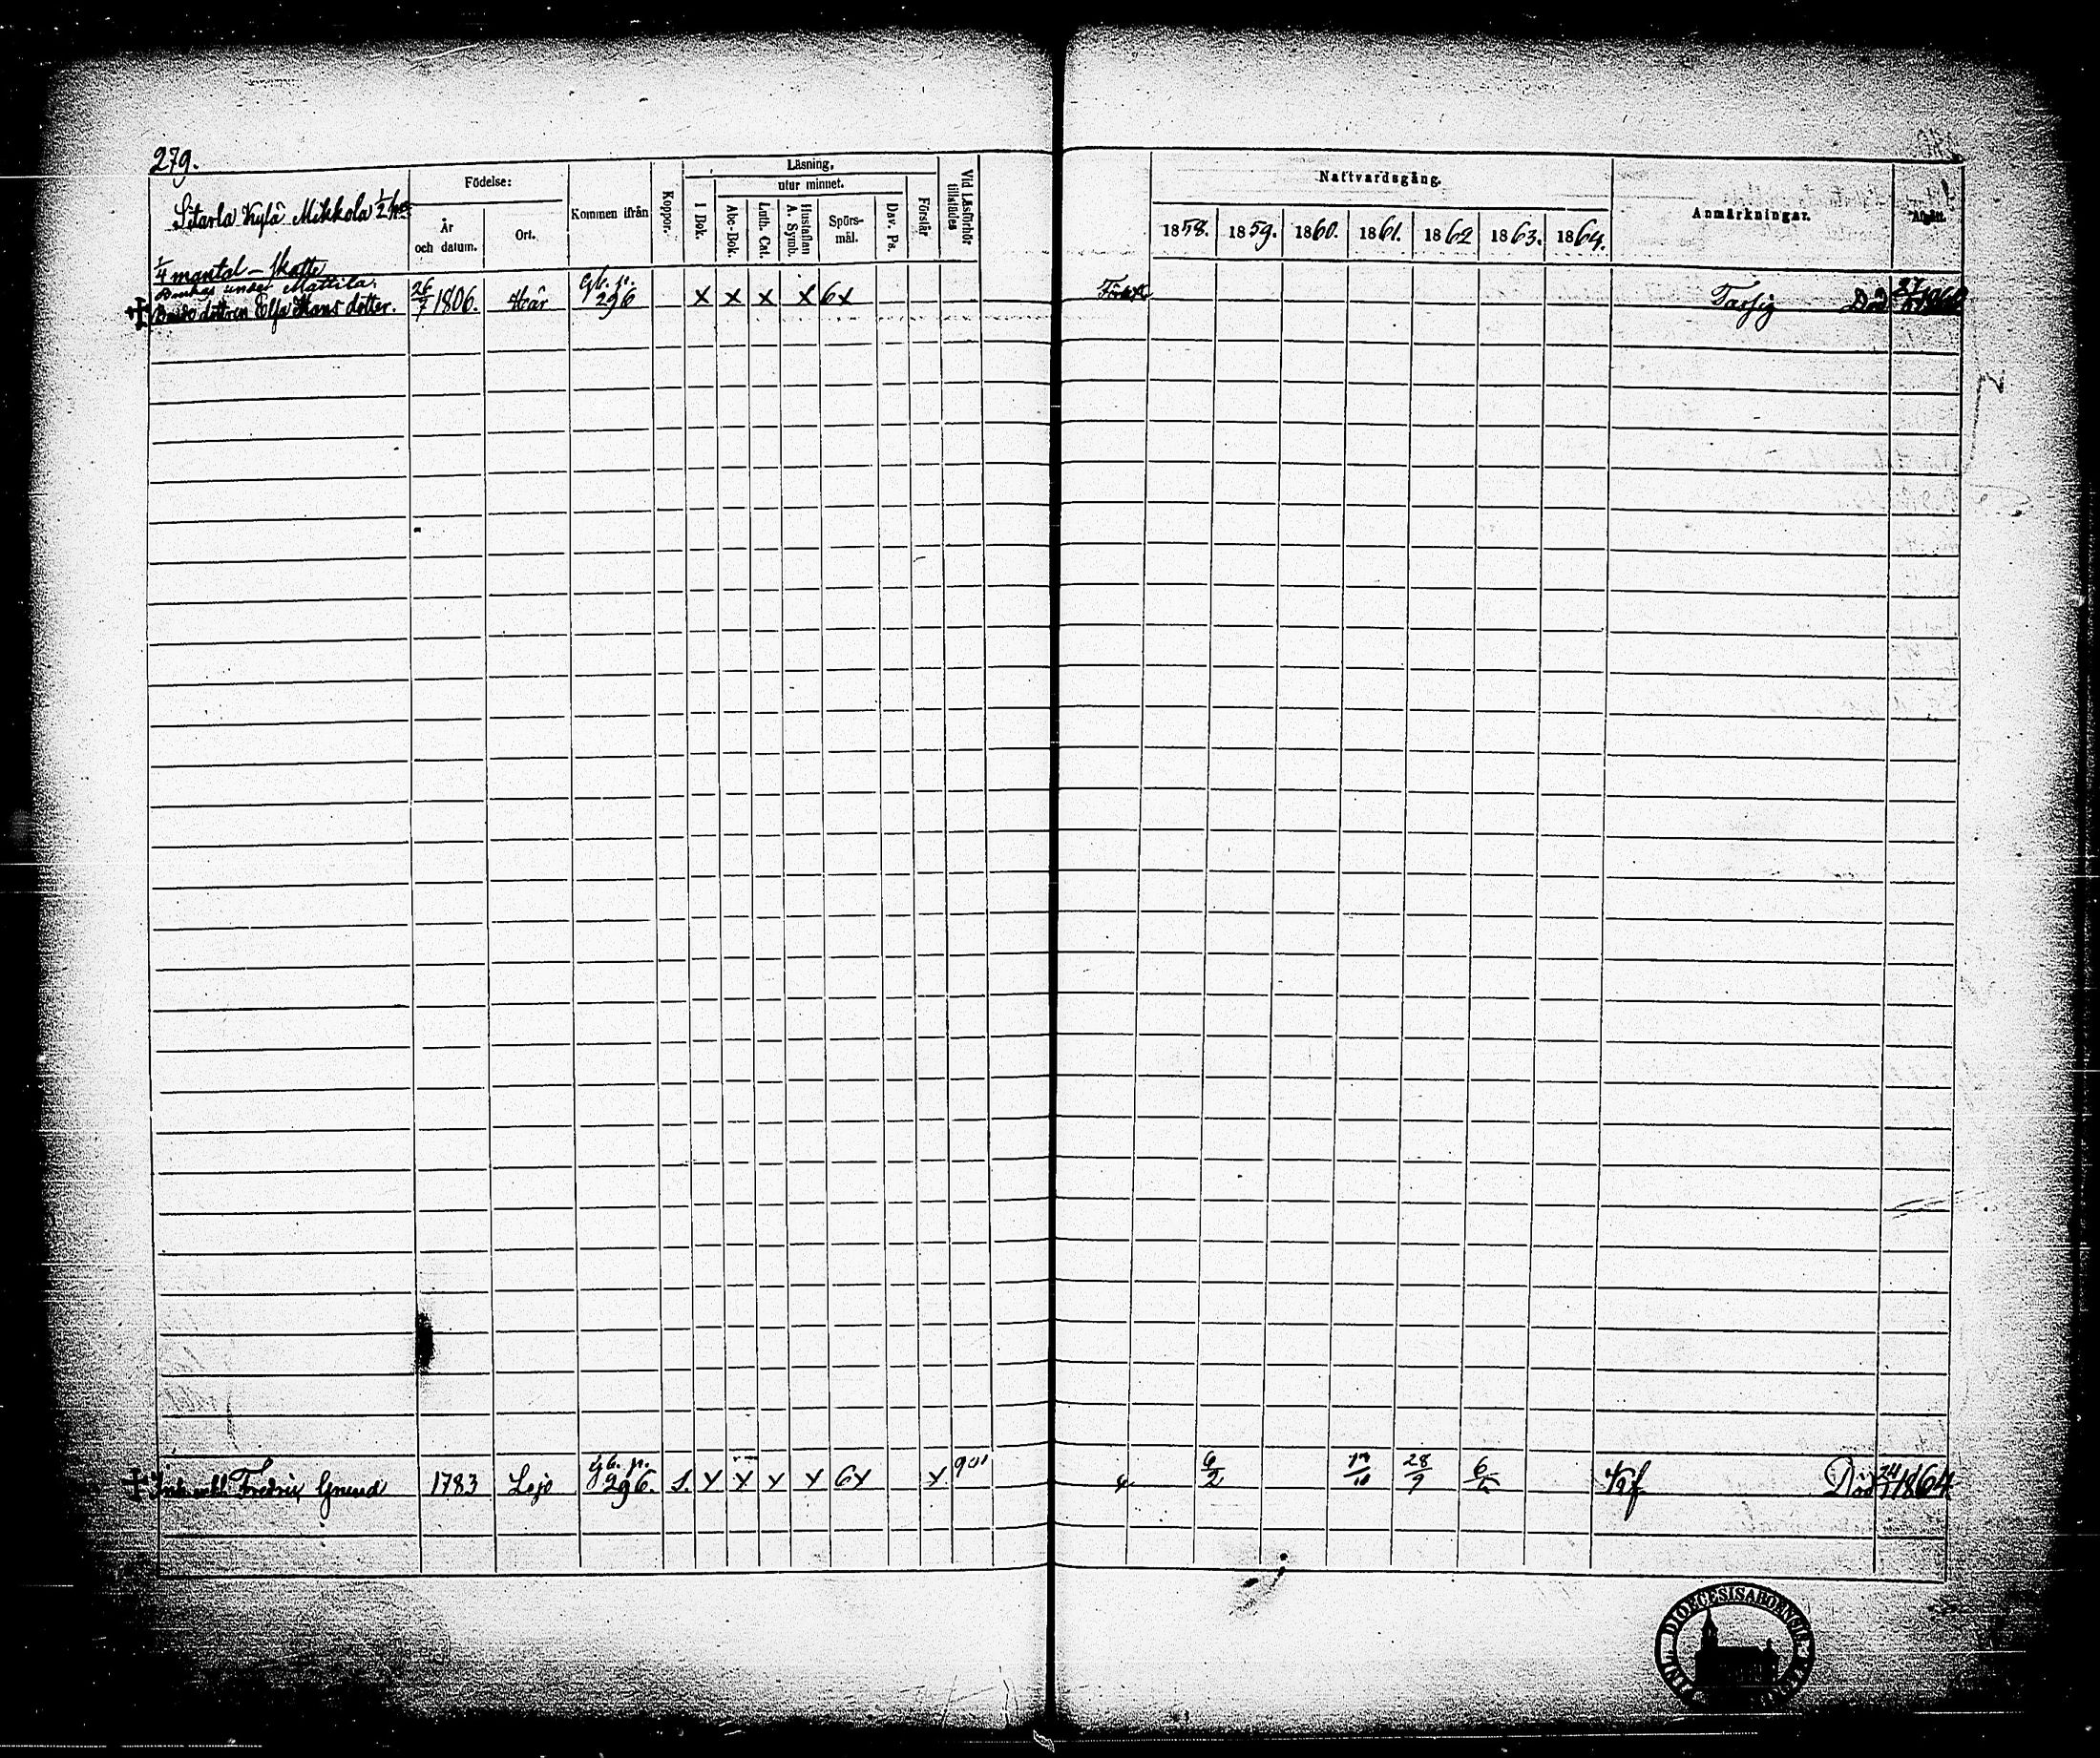 279.
Sitarla Kylä Mikkola 1/2
1/4 mantal — skatte
Brukas under Mattila.
Födelse:
År och datum.
Ort.
Kommen ifrån
Koppor.
Läsning,
utur minnet.
I Bok.
Abc-Bok.
Luth. Cat.
Hustaflan A. Symb.
Spörs-mål.
Dav. Ps.
Förstår
Vid Läsförhör tillstädes
Nattvardsgång.
1858. 1859. 1860. 1861. 1862 1863. 1864.
Anmärkningar.
Afgått.
dottren Elsa Hans dotter. 26/7 1806. Här Gb. p. 296 x x x x 6x
Fattig Död
Fredric Grund 1783 Lojo Gb. p. 296. S. x x x x 6x x
6/2 28/9 Död 24/1 1864
FINL. DIOECESIS ABOENSIS